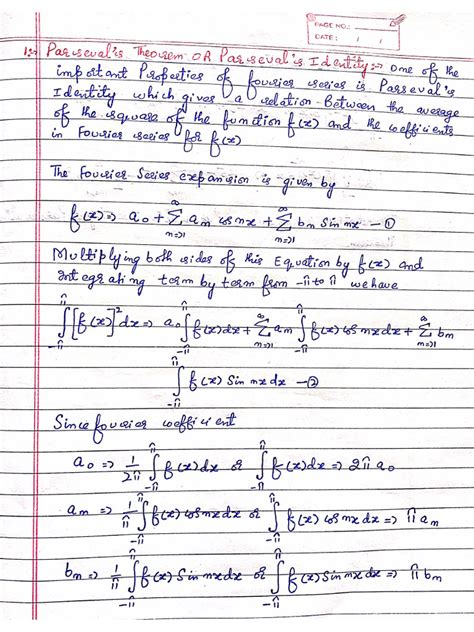 PAGE NO.:
DATE: / /
1:→ Parseval's Theorem OR Parseval's Identity:→ One of the
important Properties of fourier series is Parseval's
Identity which gives a relation Between the average
of the square of the function f(x) and the coefficients
in Fourier series for f(x)
The Fourier Series expansion is given by
f(x) ⇒ a₀ + ∑_{n=1}^{∞} aₙ cos nx + ∑_{n=1}^{∞} bₙ Sin nx — ①
Multiplying both sides of this Equation by f(x) and
integrating term by term from -π to π we have
∫_{-π}^{π} [f(x)]² dx ⇒ a₀ ∫_{-π}^{π} f(x) dx + ∑_{n=1}^{∞} aₙ ∫_{-π}^{π} f(x) cos nx dx + ∑_{n=1}^{∞} bₙ
∫_{-π}^{π} f(x) Sin nx dx — ②
Since fourier coefficient
a₀ ⇒ 1/2π ∫_{-π}^{π} f(x) dx or ∫_{-π}^{π} f(x) dx ⇒ 2π a₀
aₙ ⇒ 1/π ∫_{-π}^{π} f(x) cos nx dx or ∫_{-π}^{π} f(x) cos nx dx ⇒ π aₙ
bₙ ⇒ 1/π ∫_{-π}^{π} f(x) Sin nx dx or ∫_{-π}^{π} f(x) Sin nx dx ⇒ π bₙ